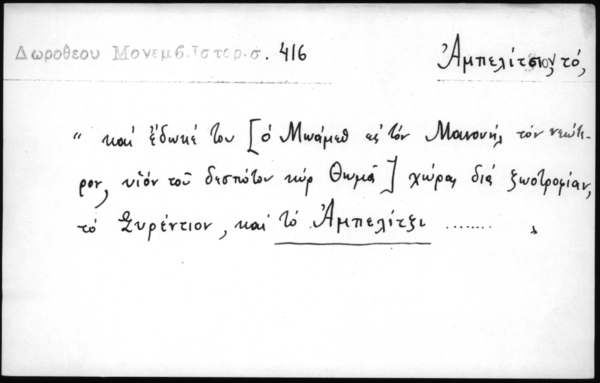 Δωροθεου Μονεμβ. Ιστορ. σ. 416 Ἀμπελίτσιον, τό,
“ καὶ ἔδωκέ του [ὁ Μωάμεθ εἰς τὸν Μανουήλ τὸν νεώτε-
ρον, υἱὸν τοῦ δεσπότου κὺρ Θωμᾶ] χώρας διὰ ζωοτροφίαν,
τὸ Συρέντσιον, καὶ τὸ Ἀμπελίτζι ........ „